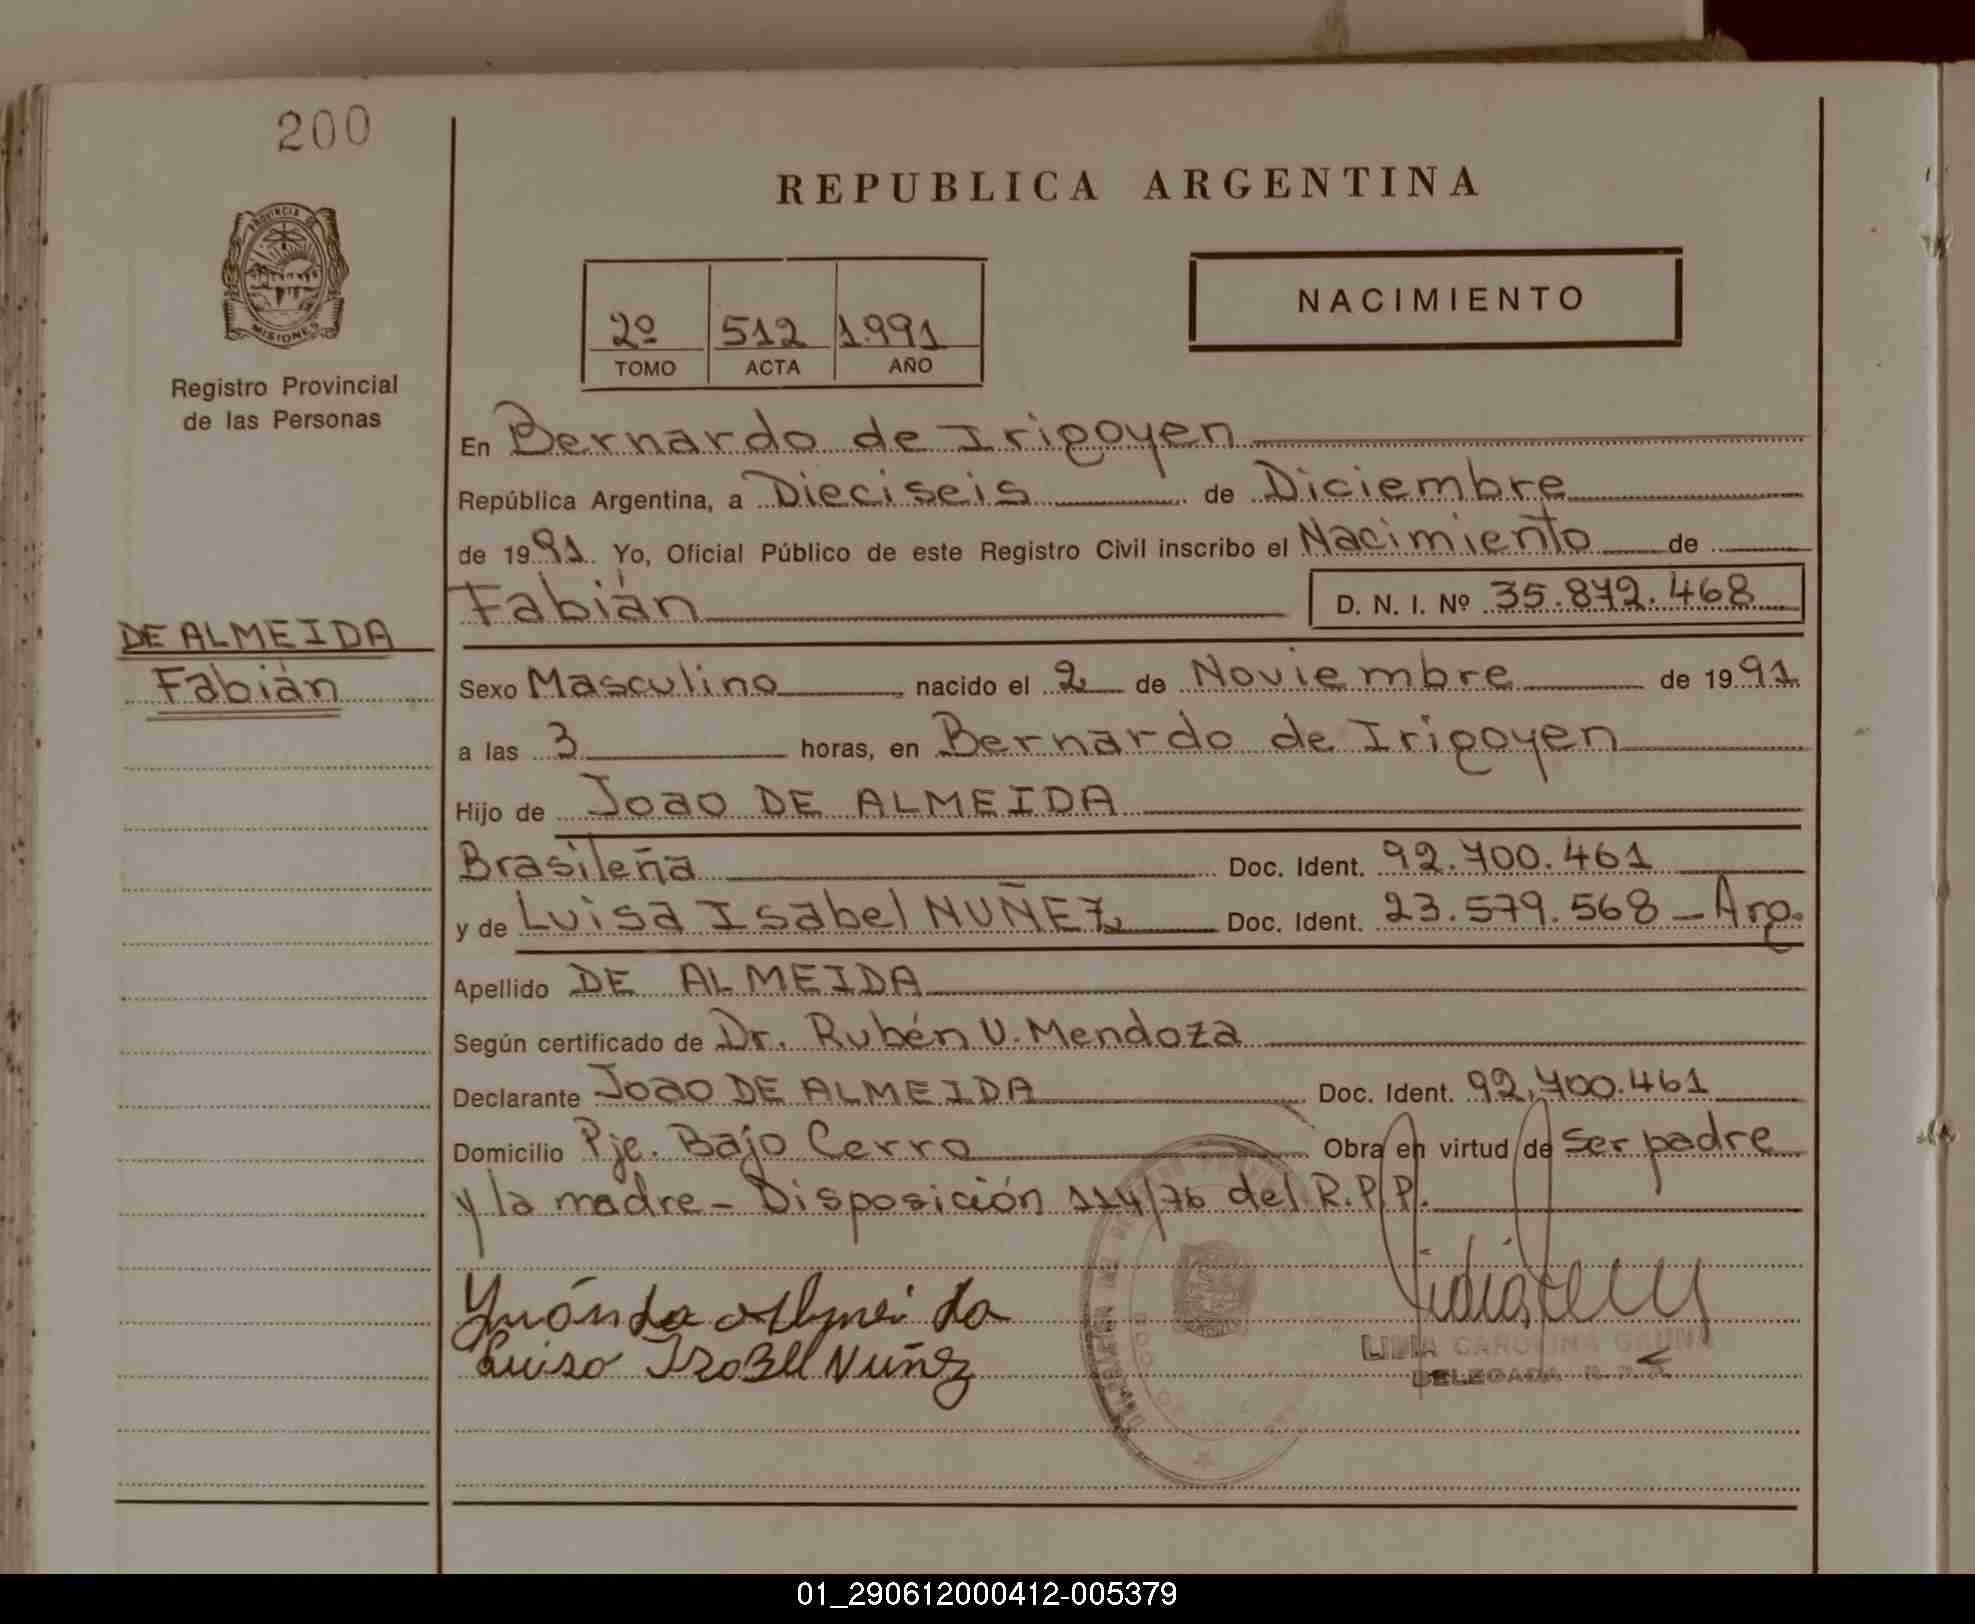 200
REPUBLICA ARGENTINA
PROVINCIA DE
MISIONES
Registro Provincial
de las Personas
2º 512 1.991
TOMO ACTA AÑO
NACIMIENTO
En Bernardo de Irigoyen
República Argentina, a Dieciseis de Diciembre
de 1991 Yo, Oficial Público de este Registro Civil inscribo el Nacimiento de
Fabián D. N. I. Nº 35.872.468
DE ALMEIDA
Fabián
Sexo Masculino, nacido el 2 de Noviembre de 1991
a las 3 horas, en Bernardo de Irigoyen
Hijo de Joao DE ALMEIDA
Brasileña Doc. Ident. 92.700.461
y de Luisa Isabel NUÑEZ Doc. Ident. 23.579.568 - Arg.
Apellido DE ALMEIDA
Según certificado de Dr. Rubén U. Mendoza
Declarante Joao DE ALMEIDA Doc. Ident. 92.700.461
Domicilio Pje. Bajo Cerro Obra en virtud de ser padre
y la madre - Disposición 114/76 del R.P.P.
Luiso Isobel Nuñez
CAROLINA GAUNA
DELEGADA R.P.P.
01_290612000412-005379